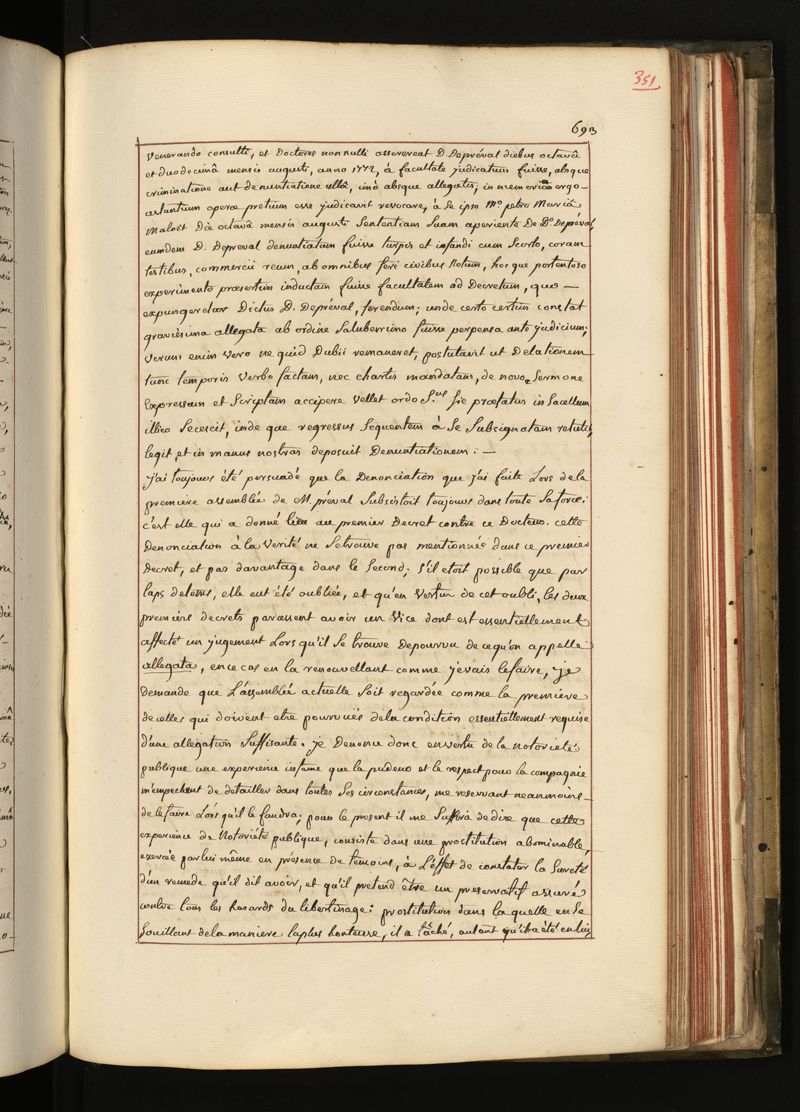 351
693
Venerando consulti, et Doctores nonnulli assererent D. Depréval diebus octavâ
et duodecimâ mensis augusti, anno 1772, à facultate judicatum fuisse, absque
criminatione aut denuntiatione ullâ, imò absque allegatis; in memoriam ergo
astantium operæ pretium esse judicavit revocare, à Se ipso M.º petro Maria
Maloët Die octavâ mensis augusti Sententiam Suam aperiente De D.º Depréval,
eumdem D. Depréval denuntiatum fuisse turpis et infandi cum Scorto, coram
testibus, commercii reum, ab omnibus ferè civibus Notum, hocque portentoso
experimento præsertim inductam fuisse facultatem ad Decretum, quo —
expungeretur Dictus D. Depréval, ferendum; unde certo certius constat
gravissima allegata ab ordine Saluberrimo fuisse perpensa ante judicium;
Verum enim vero ne quid Dubii remaneret, postulavit ut Delationem
tunc temporis Verbo factam, nec chartis mandatam, de novo Sermone
Expressam et Scriptam accipere Vellet ordo S.us Sic præfatus in Sacellum
illico Secessit, inde que regressus Sequentem à Se Subsignatam retulit,
legit, et in manus nostras deposuit Denuntiationem: —
j'ai toujours été persuadé que la Denonciation que j'ai faite Lors de la
premiere assemblée de M. préval Subsistoit toujours dans toute Sa force:
c'est elle qui a donné lieu au premier Decret contre ce Docteur. cette
Denonciation à la Verité ne Se trouve pas mentionnée dans ce premier
Decret, et pas davantage dans le Second; S'il etoit possible que par
laps de tems, elle eut été oubliée, et qu'en Vertu de cet oubli, les deux
premiers decrets parussent avoir un Vice dont est essentiellement
affecté un jugement Lors qu'il Se trouve Depourvu de ce qu'on appelle
allegata, en ce cas en la renouvellant comme je vais le faire, je
Demande que L'assemblée actuelle Soit regardée comme la premiere
de celles qui doivent etre pourvuës de la condition essentiellement requise
d'une allegation Suffisante. je Denonce donc en vertu de la notorieté
publique une experience infame que la pudeur et le respect pour la compagnie
m'empechent de detailler dans toutes Ses circonstances, me reservant neanmoins
de le faire Lors qu'il le faudra; pour le present il me Suffira de dire que cette
experience de Notoriété publique, consiste dans une prostitution abominable,
exercée par lui même en présence de temoins, à L'effet de constater la Sureté
d'un remede qu'il dit avoir, et qu'il pretend être un preservatif assuré
contre tous les hasards du libertinage: prostitution dans la quelle en Se
Souillant de la maniere la plus honteuse, il a tâché, autant qu'il a été en lui,